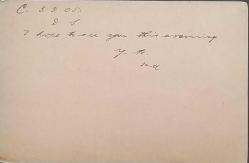 C. 3.3.05.
D S.
I hope to see you this evening
Y to.